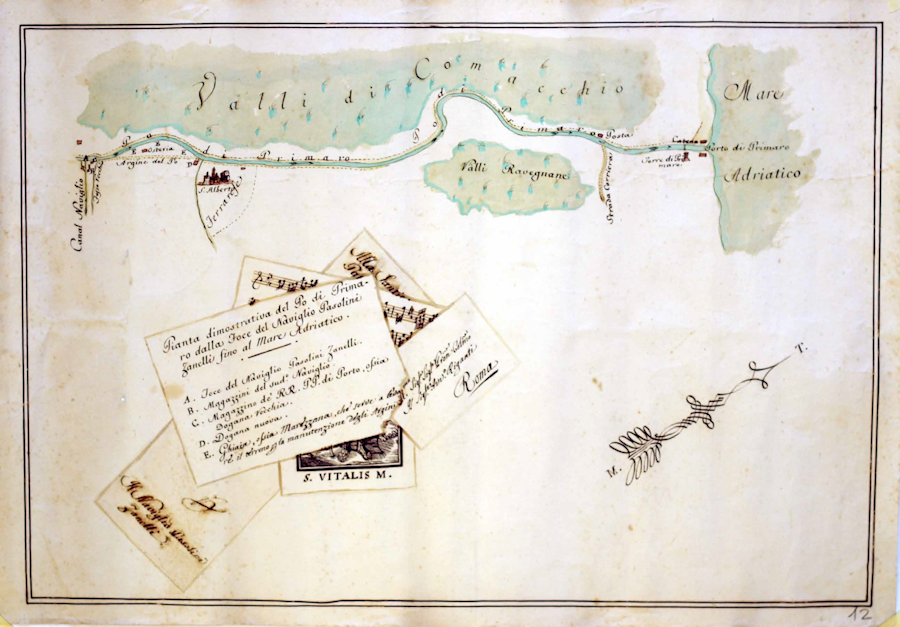 Valli di Comacchio
Mare
Adriatico
Porto di Primaro
Po di Primaro
Po di Primaro
Posta
Torre di Pri
maro
Valli Ravegnane
Strada Corriera
Osteria
Argine del Po
S. Alberto
Canal Naviglio
Pianta dimostrativa del Po di Prima-
ro dalla Foce del Naviglio Pasolini
Zanelli fino al Mare Adriatico.
A. Foce del Naviglio Pasolini Zanelli.
B. Magazzini del sudº Naviglio
C. Magazzino de' RR. PP. di Porto, ossia
Dogana vecchia.
D. Dogana nuova.
E. Ghiaja, ossia che serve a
re il termine la manutenzione degli Argini
Alla
Roma
S. VITALIS M.
Il Naviglio Pasolini
Zanelli
T.
M.
12